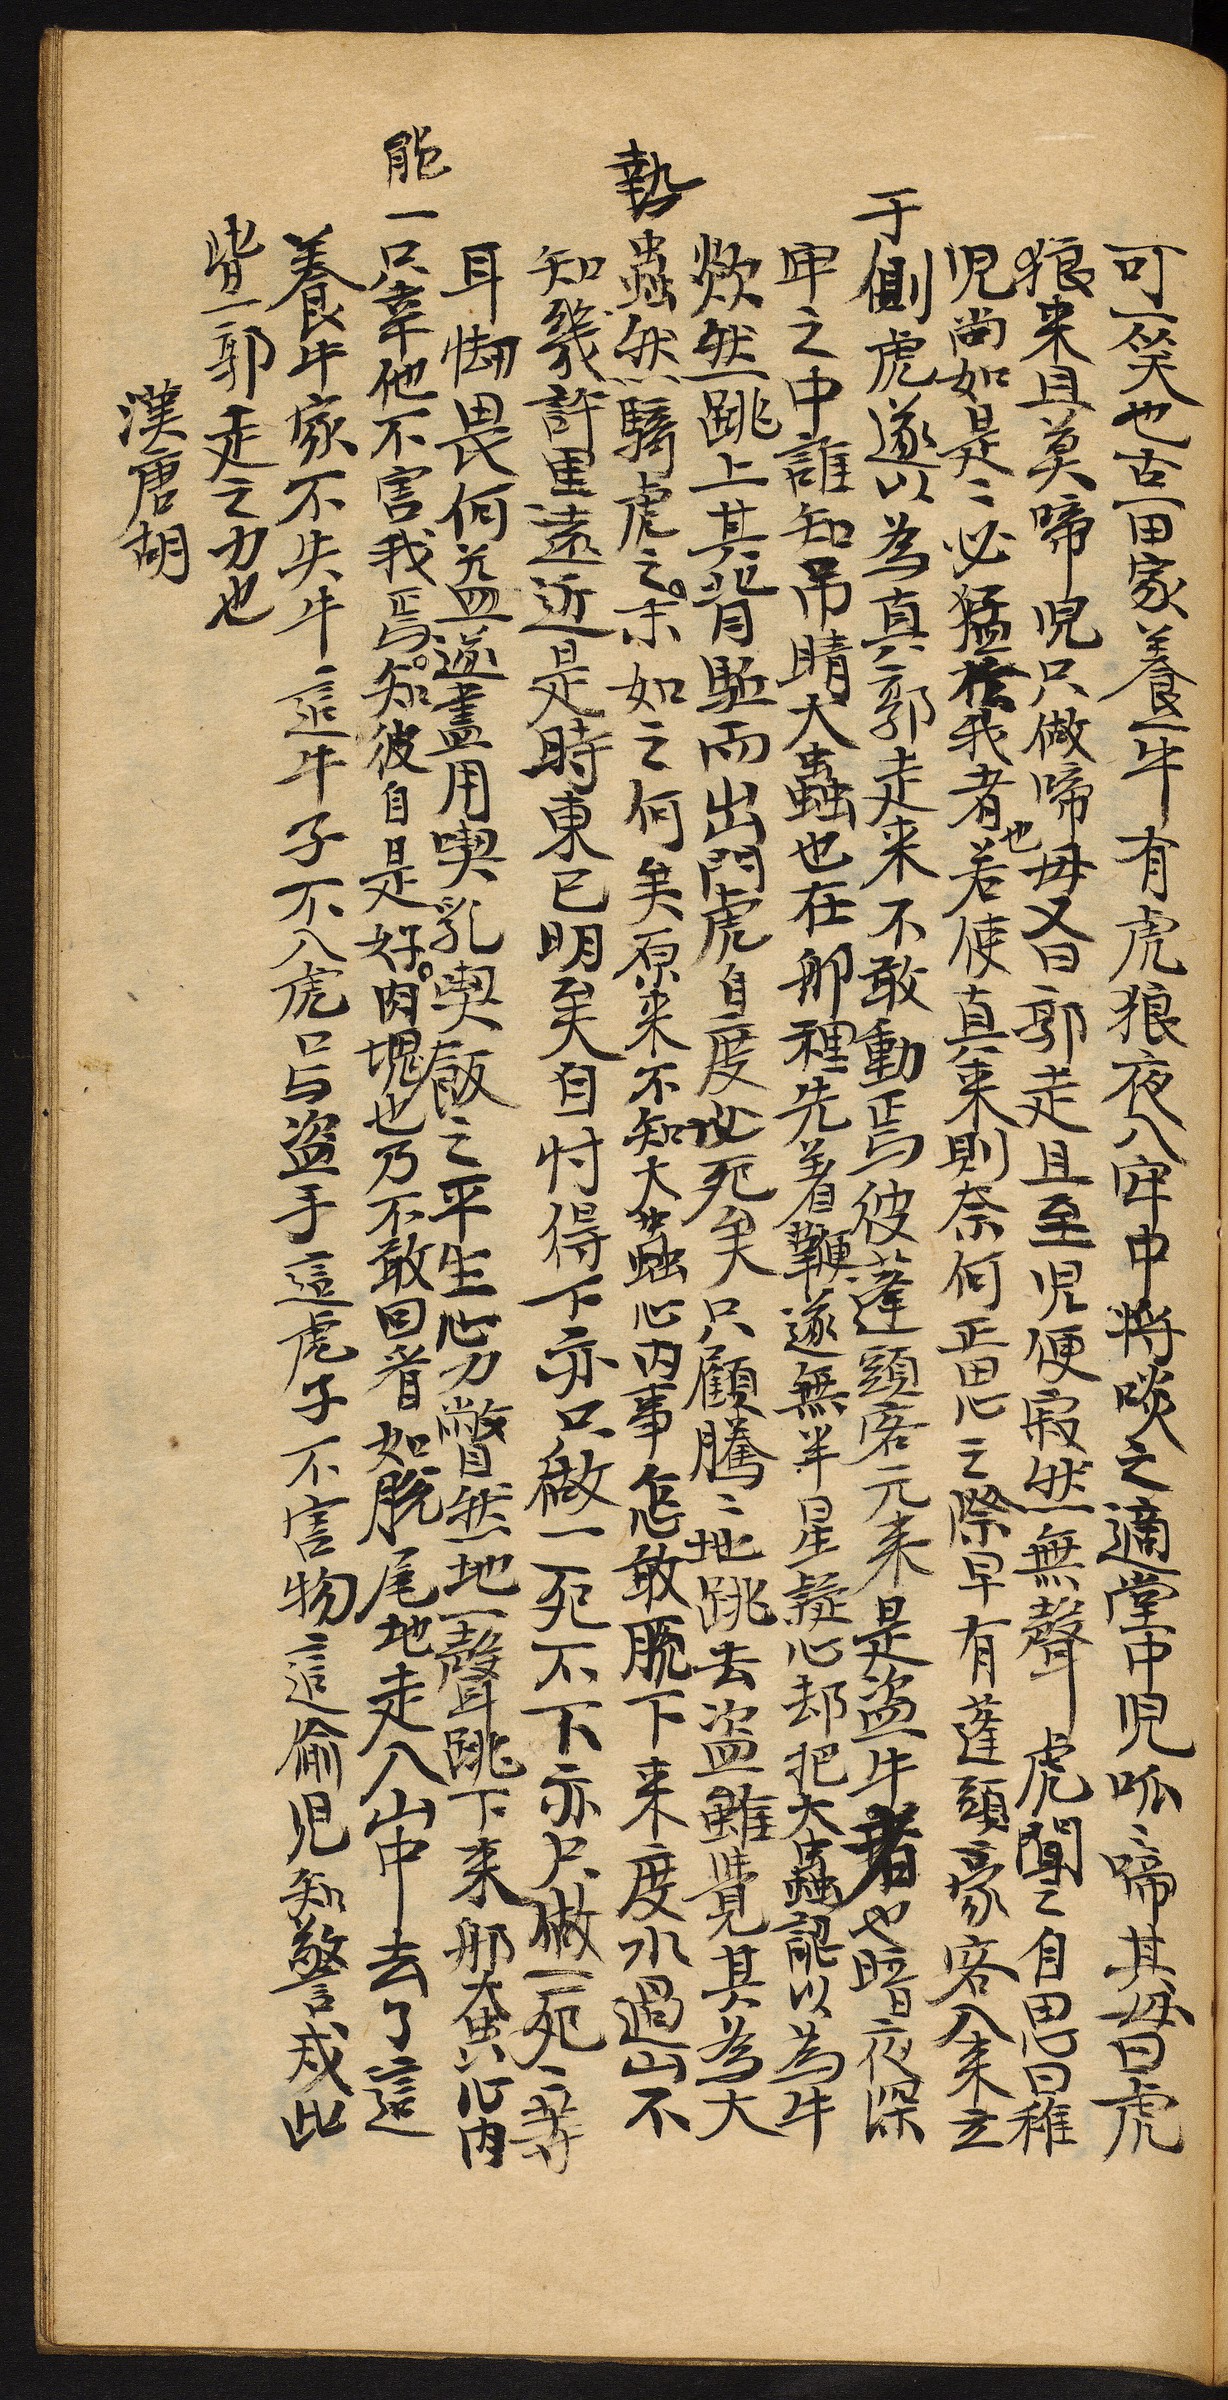 可一笑也古一田家養一牛有虎狼夜入牢中將啖之適堂中児呱〻啼其母曰虎
狼来且莫啼児只做啼母又曰郭走且至児便寂然無聲虎聞之自思曰稚
児尚如是〻必猛於我者也若使真来則奈何正思之際早有蓬頭豪客入来立
于側虎遂以為真郭走来不敢動焉彼蓬頭客元来是盜牛者也暗夜深
牢之中誰知吊睛大蟲也在那裡先着鞭遂無半星疑心却把大蟲認以為牛
欻然跳上其背驅而出門虎自度必死矣只顧騰〻地跳去盜雖覺其為大
蟲然騎虎之勢末如之何矣原来不知大蟲心内事怎敢脫下来度水過山不
知幾許里遠近是時東已明矣自忖得下亦只做一死不下亦只做一死〻等
耳恸畏何益遂盡用喫乳喫飯之平生心力瞥然地一聲跳下来那大蟲心内
一只幸他不害我焉能知彼自是好肉塊也乃不敢回看如脫尾地走入山中去了這
養牛家不失牛這牛子不入虎口与盜手這虎子不害物這偷児知警戒此
皆一郭走之力也
漢唐胡